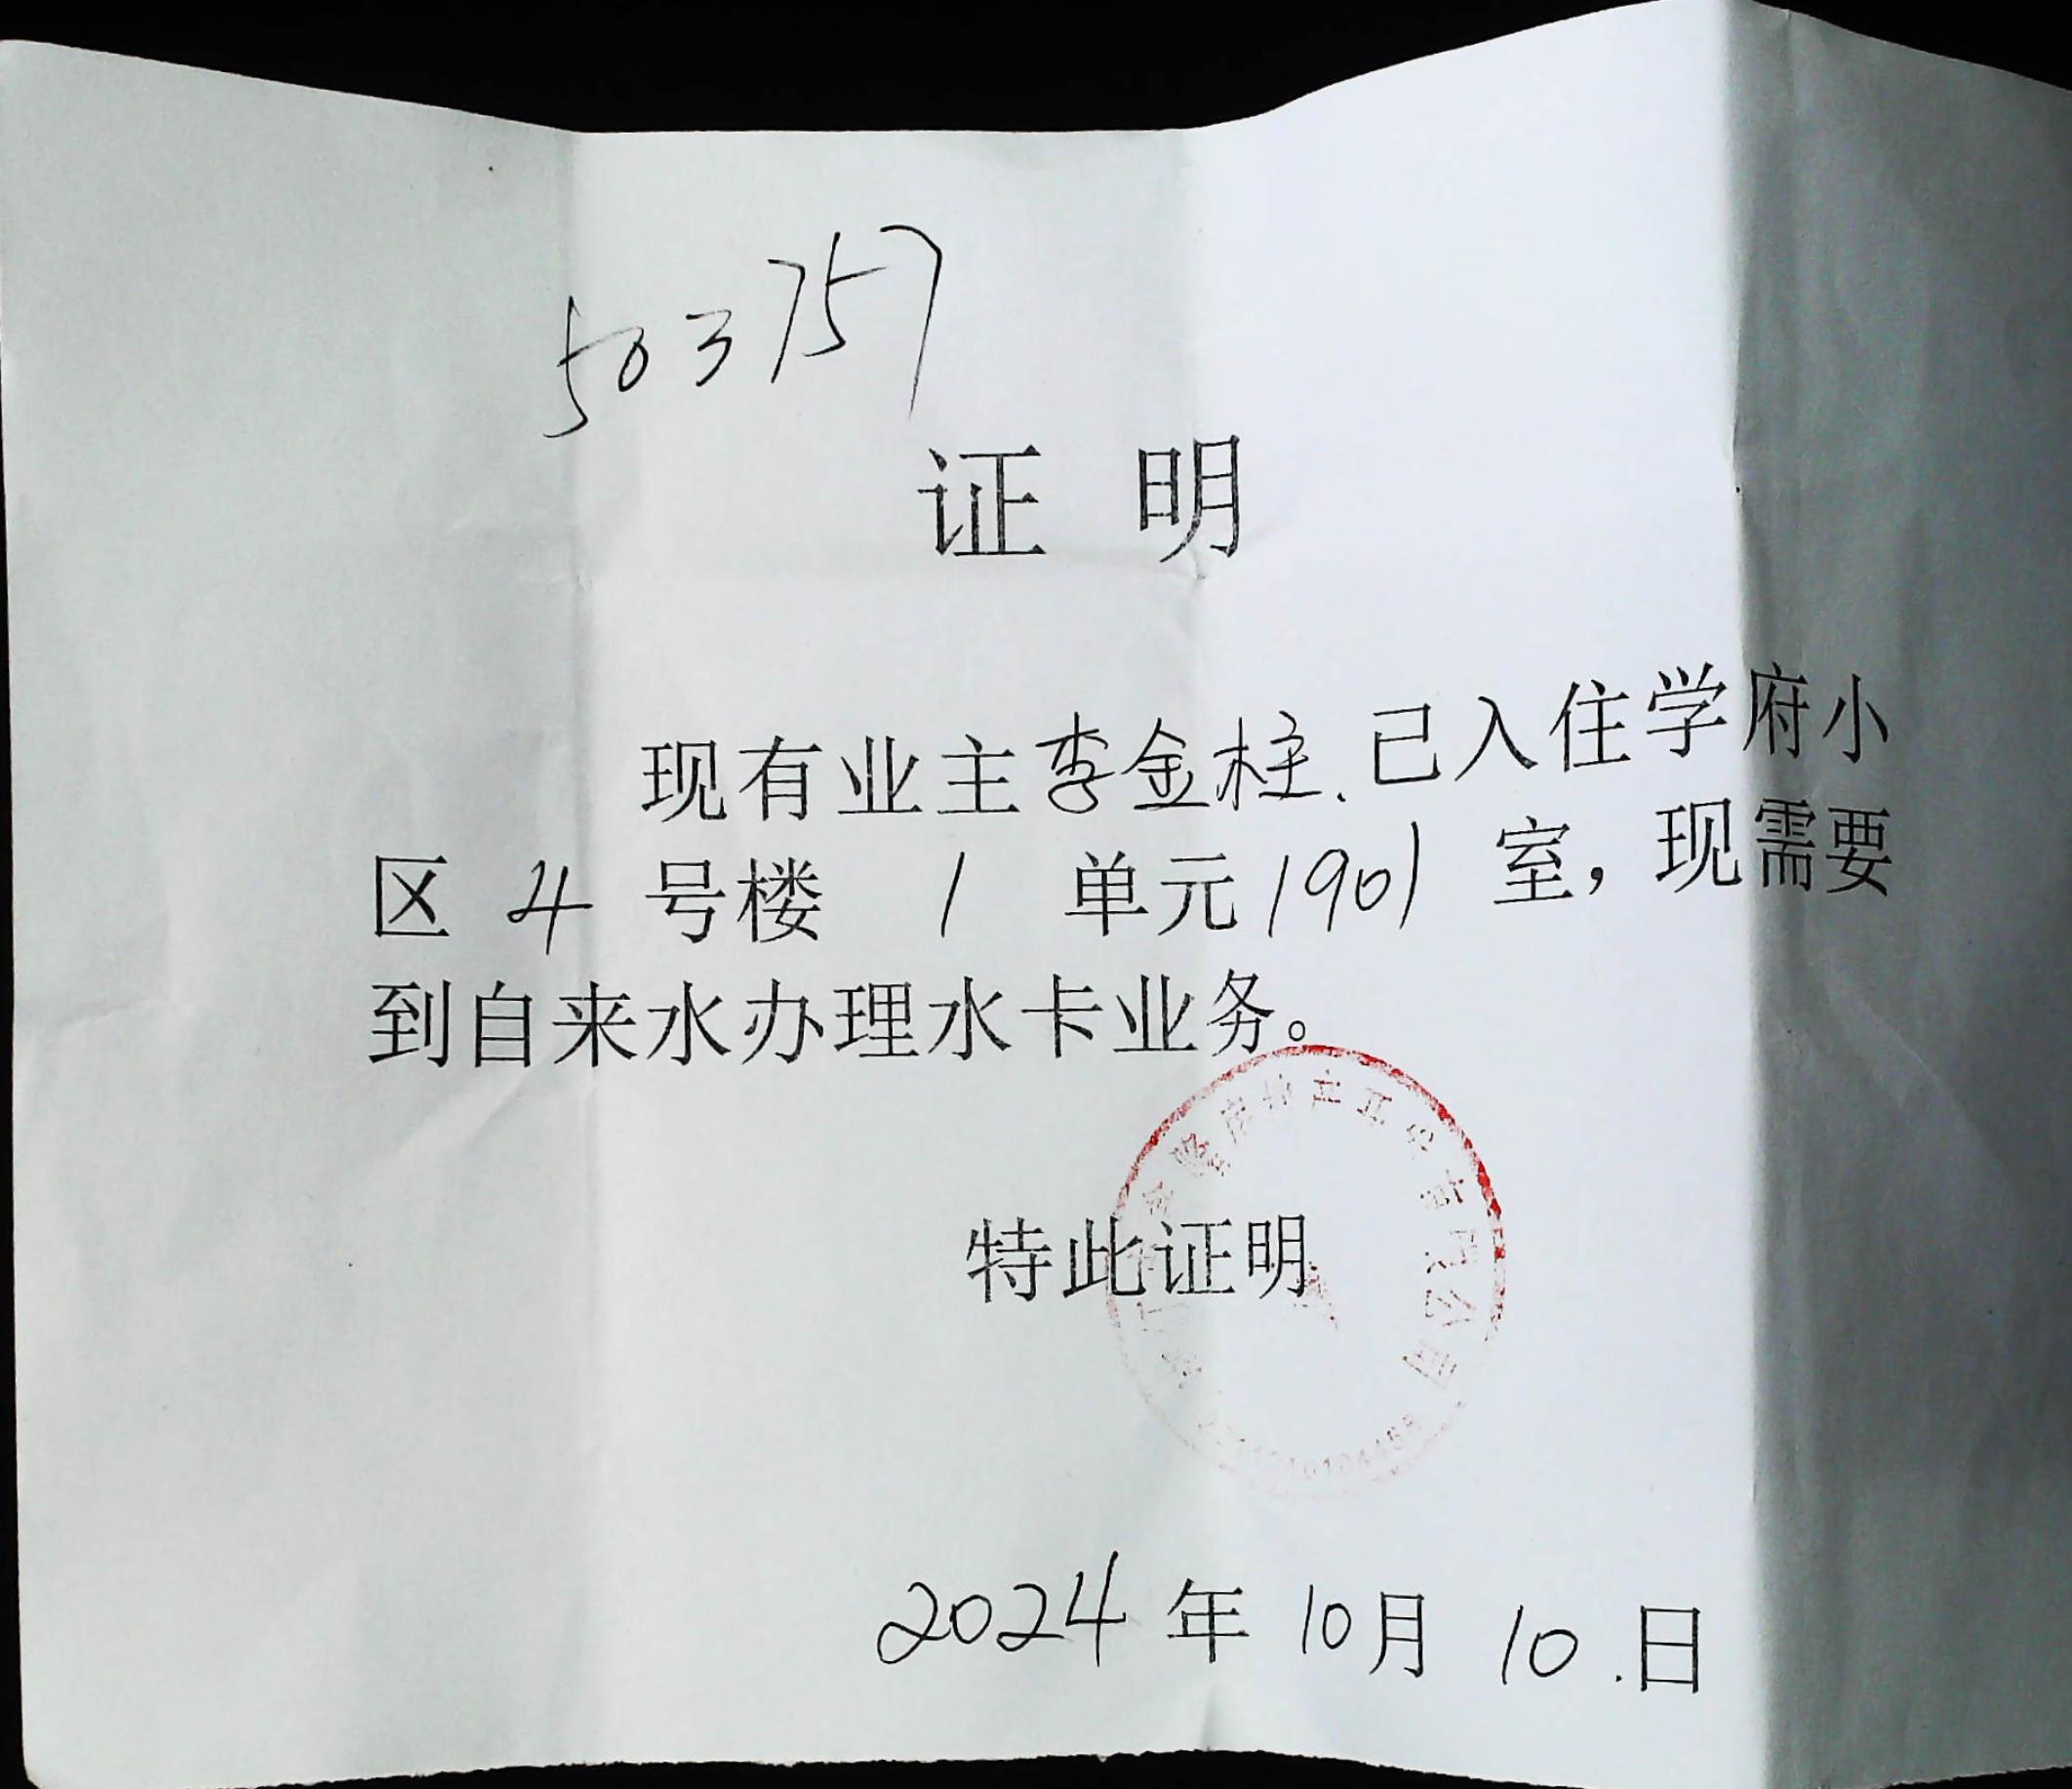 503757
证 明
现有业主李金柱.已入住学府小
区 4 号楼 1 单元1901 室，现需要
到自来水办理水卡业务。
特此证明
2024 年 10月 10.日